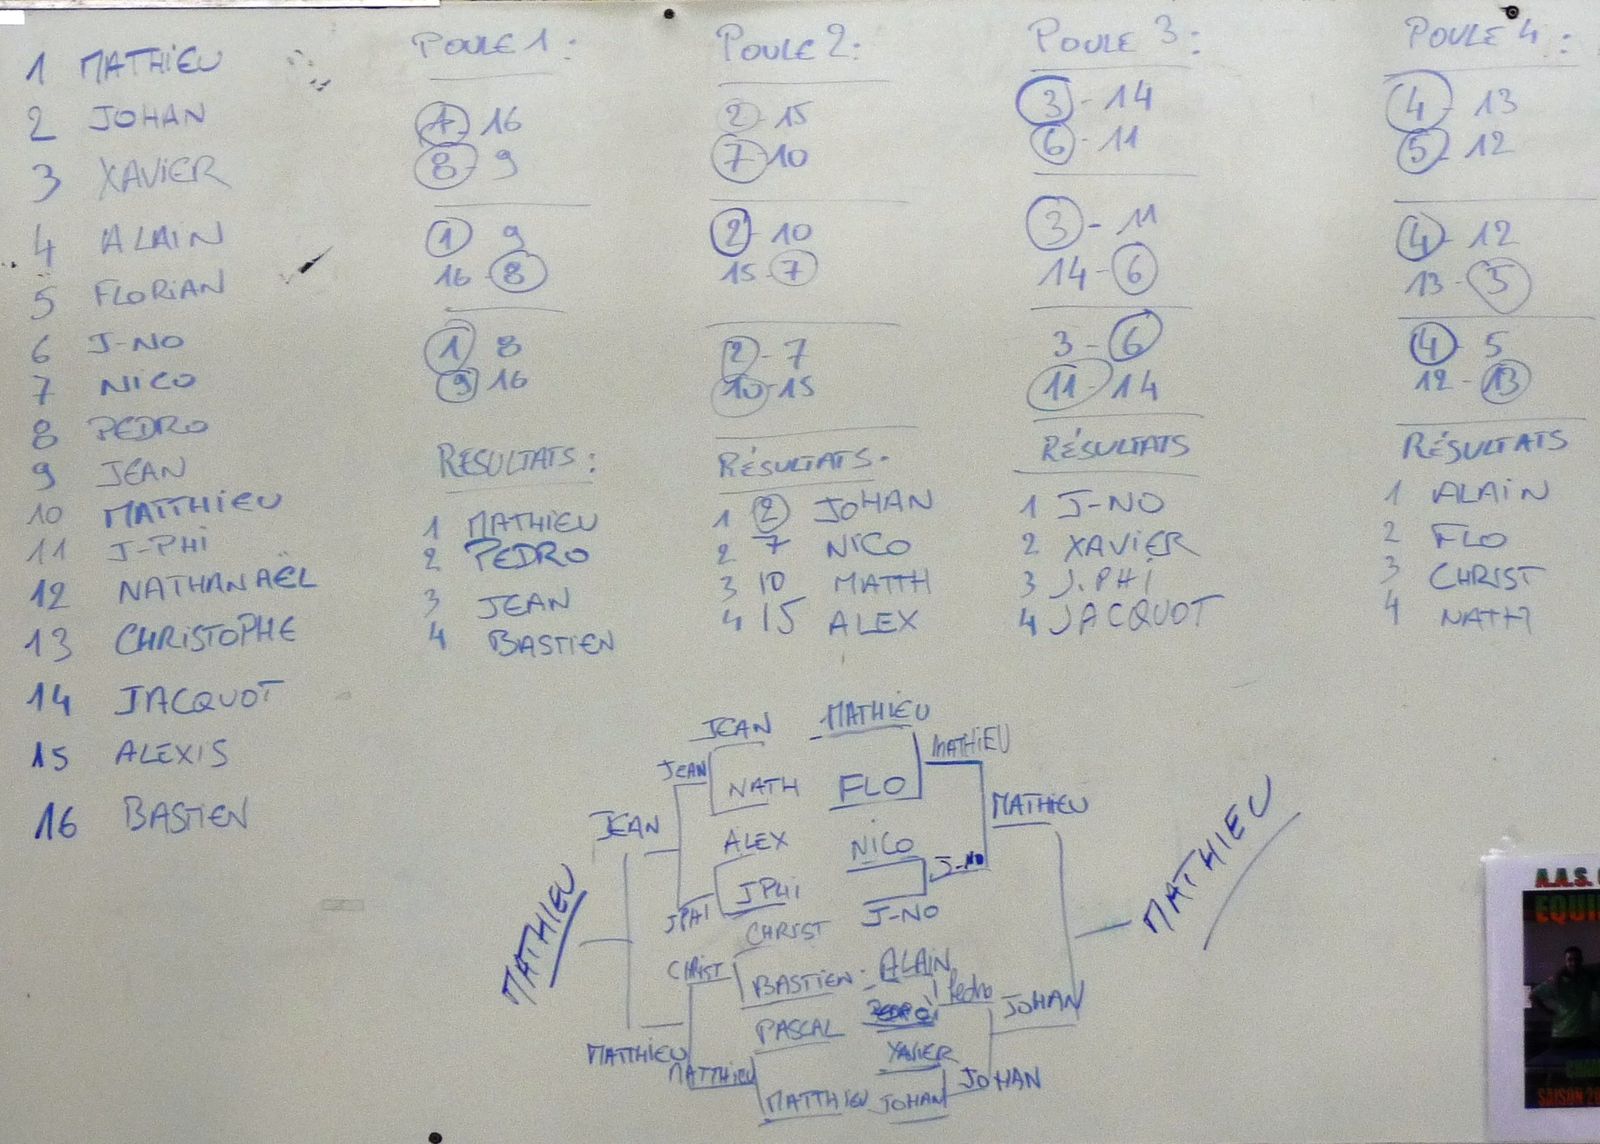 1 MATHIEU
2 JOHAN
3 XAVIER
4 ALAIN
5 FLORIAN
6 J-NO
7 NICO
8 PEDRO
9 JEAN
10 MATTHIEU
11 J-PHI
12 NATHANAËL
13 CHRISTOPHE
14 JACQUOT
15 ALEXIS
16 BASTIEN
POULE 1 :
1-16
8-9
1 9
16-8
1 8
9 16
RESULTATS :
1 MATHIEU
2 PEDRO
3 JEAN
4 BASTIEN
POULE 2 :
2-15
7-10
2-10
15-7
2-7
10-15
RÉSULTATS.
1 2 JOHAN
2 7 NICO
3 10 MATTH
4 15 ALEX
POULE 3 :
3-14
6-11
3-11
14-6
3-6
11-14
RÉSULTATS
1 J-NO
2 XAVIER
3 J.PHI
4 JACQUOT
POULE 4 :
4-13
5-12
4-12
13-5
4 5
12-13
RÉSULTATS
1 ALAIN
2 FLO
3 CHRIST
4 NATH
JEAN
NATH
ALEX
JPHI
CHRIST
BASTIEN
PASCAL
MATTHIEU
JEAN
JPHI
CHRIST
MATTHIEU
JEAN
MATTHIEU
MATHIEU
MATHIEU
FLO
NICO
J-NO
ALAIN
XAVIER
JOHAN
MATHIEU
J-NO
Pedro
JOHAN
MATHIEU
JOHAN
MATHIEU
A.A.S.
EQUI
SAISON 20